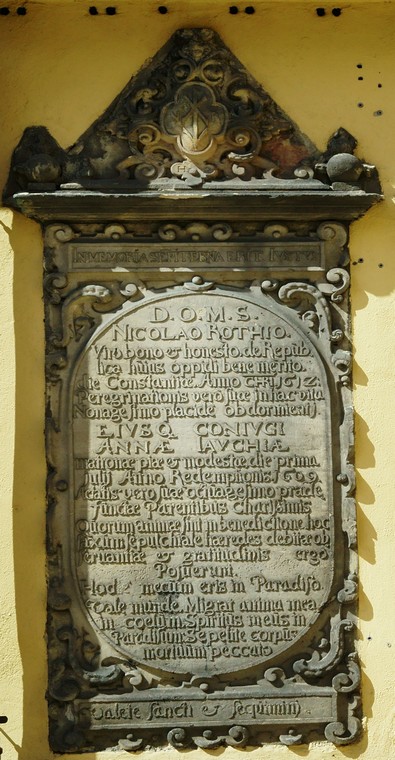 IN MEMORIA ÆTERNA ERIT IUSTUS
D. O. M. S.
NICOLAO ROTHIO.
Viro bono & honesto, de Repub
lica huius oppidi bene merito.
die Constantiæ Anno CHRI, 1612:
Peregrinationis vero suæ in hac vita
Nonagesimo placide obdormienti,
EJUSQ. CONIUGI
ANNÆ IAUCHIÆ
matronæ piæ & modestæ, die prima
Julij Anno Redemptionis 1609.
Ætatis vero suæ octuagesimo præde
functæ Parentibus Charissimis
Quorum animæ sint in benedictione hoc
saxum sepulchrale hæredes debitæ ob
servantiæ & gratitudinis ergo
Posuerunt.
Hodie mecum eris in Paradiso.
Vale munde, Migrat anima mea
in cœlum, Spiritus meus in
Paradisum, Sepelite corpus
mortuum peccato
Valete sancti & sequimini,